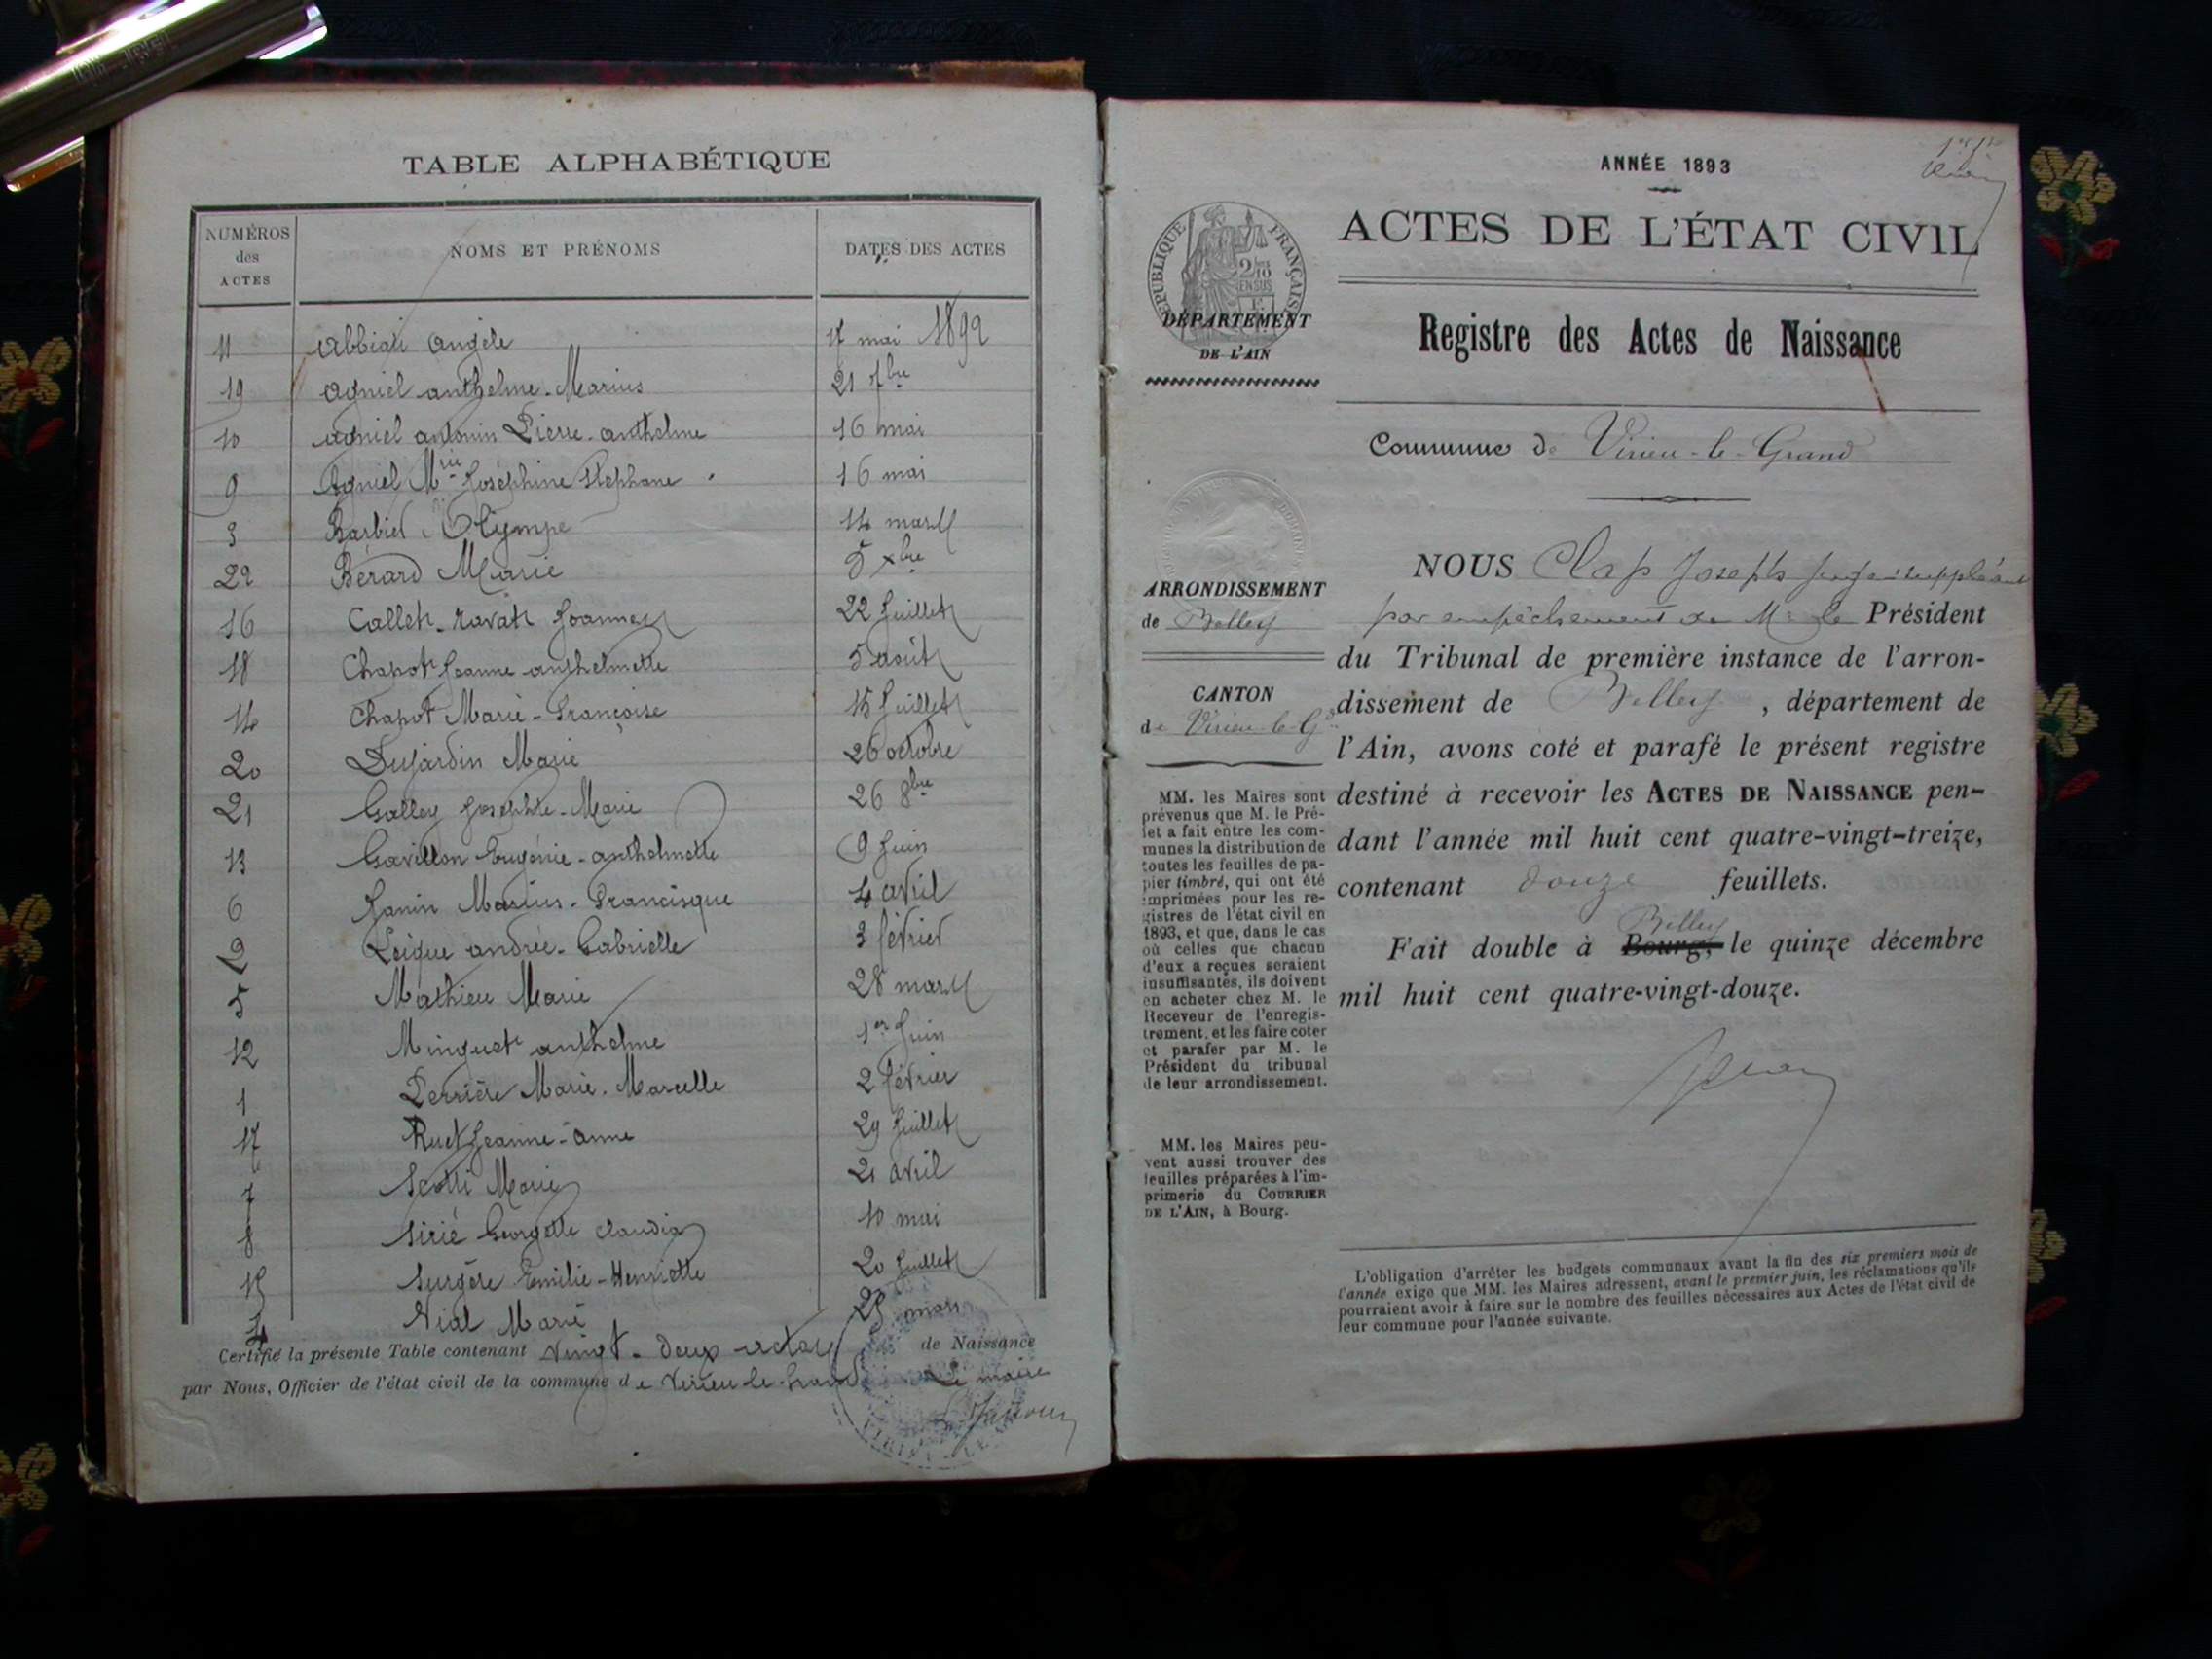 TABLE ALPHABÉTIQUE
NUMÉROS des ACTES NOMS ET PRÉNOMS DATES DES ACTES
11 Abbiati Angèle 17 mai 1892
19 Agniel Anthelme-Marius 21 7bre
10 Agniel Antonin Pierre-Anthelme 16 mai
9 Agniel Mrie Joséphine Stéphane 16 mai
3 Barbier Olympe 14 mars
22 Bérard Marie 5 xbre
16 Callet-Ravat Joannes 22 Juillet
18 Chapot Jeanne Anthelmette 5 août
14 Chapot Marie-Françoise 15 Juillet
20 Dujardin Marie 26 octobre
21 Galley Josephte-Marie 26 8bre
13 Gavillon Eugénie-Anthelmette 9 Juin
6 Janin Marius-Francisque 4 avril
2 andrée-Gabrielle 3 février
5 Mathieu Marie 28 mars
12 Minguet Anthelme 1er Juin
1 Perrière Marie-Marcelle 2 février
17 Ruet Jeanne-Anne 29 Juillet
7 Scotti Marie 21 avril
8 Sirié Georgette Claudia 10 mai
15 Surgère Emilie-Henriette 20 Juillet
4 Vial Marie mars
Certifié la présente Table contenant vingt-deux actes de Naissance
par Nous, Officier de l'état civil de la commune de Virieu-le-Grand Le maire
ANNÉE 1893
RÉPUBLIQUE FRANÇAISE
ACTES DE L'ÉTAT CIVIL
DÉPARTEMENT
DE L'AIN
Registre des Actes de Naissance
Commune de Virieu-le-Grand
ARRONDISSEMENT
de Belley
CANTON
de Virieu-le-Gd
MM. les Maires sont
prévenus que M. le Pré-
fet a fait entre les com-
munes la distribution de
toutes les feuilles de pa-
pier timbré, qui ont été
imprimées pour les re-
gistres de l'état civil en
1893, et que, dans le cas
où celles que chacun
d'eux a reçues seraient
insuffisantes, ils doivent
en acheter chez M. le
Receveur de l'enregis-
trement, et les faire coter
et parafer par M. le
Président du tribunal
de leur arrondissement.
MM. les Maires peu-
vent aussi trouver des
feuilles préparées à l'im-
primerie du COURRIER
DE L'AIN, à Bourg.
NOUS Clap Joseph juge suppléant
par empêchement de Mr le Président
du Tribunal de première instance de l'arron-
dissement de Belley, département de
l'Ain, avons coté et parafé le présent registre
destiné à recevoir les ACTES DE NAISSANCE pen-
dant l'année mil huit cent quatre-vingt-treize,
contenant douze feuillets.
Belley
Fait double à Bourg, le quinze décembre
mil huit cent quatre-vingt-douze.
L'obligation d'arrêter les budgets communaux avant la fin des six premiers mois de
l'année exige que MM. les Maires adressent, avant le premier juin, les réclamations qu'ils
pourraient avoir à faire sur le nombre des feuilles nécessaires aux Actes de l'état civil de
leur commune pour l'année suivante.